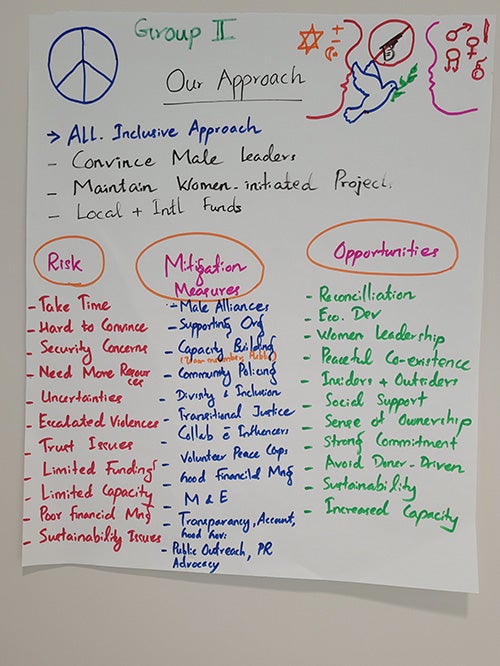 Group II
Our Approach
→ ALL. Inclusive Approach
- Convince Male leaders
- Maintain Women-initiated Project.
- Local + Intl Funds
Risk
- Take Time
- Hard to Convince
- Security Concerns
- Need More Resour
ces
- Uncertainties
- Escalated Violences
- Trust Issues
- Limited Funding
- Limited Capacity
- Poor Financial Mng
- Sustainability Issues
Mitigation
Measures
- Male Alliances
- Supporting Org
- Capacity Building
- Community Policing
- Divisty & Inclusion
- Transitional Justice
- Collab c̄ Influencers
- Volunteer Peace Cops
- Good Financial Mng
- M & E
- Transparency, Account,
Good Gov.
- Public Outreach, PR
Advocacy
Opportunities
- Reconcilliation
- Eco. Dev
- Women Leadership
- Peaceful Co-existence
- Insiders + Outsiders
- Social Support
- Sense of Ownership
- Strong Commitment
- Avoid Doner-Driven
- Sustainability
- Increased Capacity